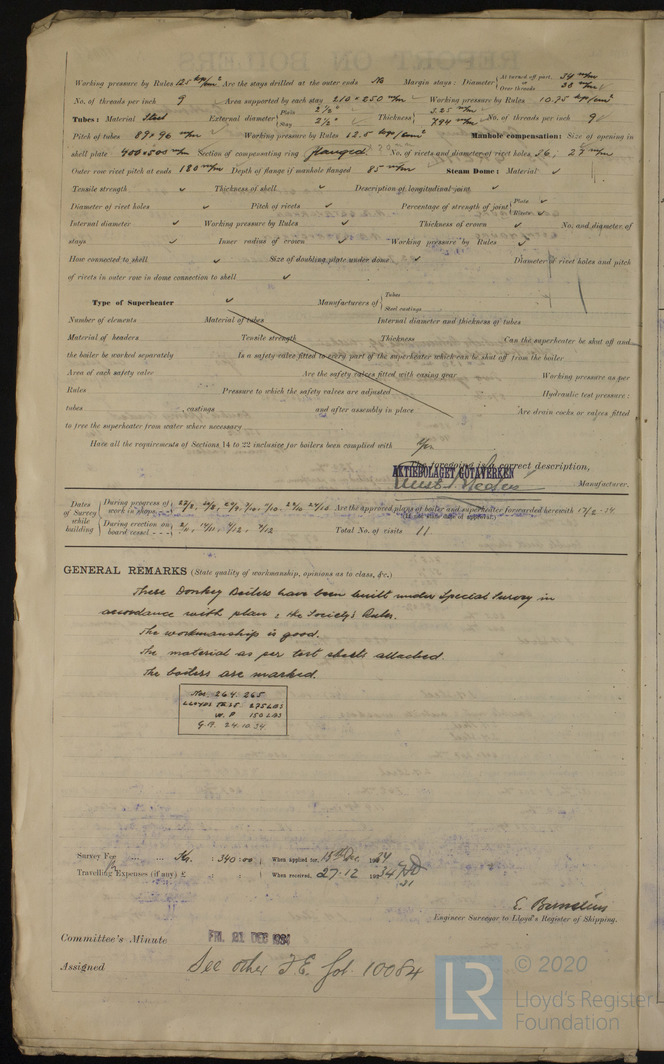 Working pressure by Rules 12.5 kgs/cm² Are the stays drilled at the outer ends No Margin stays: Diameter { At turned off part, 34 m/m or Over threads 38 m/m
No. of threads per inch 9 Area supported by each stay 210 × 250 m/m Working pressure by Rules 10.75 kgs/cm²
Tubes: Material Steel External diameter { Plain 2½" Stay 2½" Thickness { 3.25 m/m No. of threads per inch 9
Pitch of tubes 87 × 96 m/m Working pressure by Rules 12.5 kgs/cm² Manhole compensation: Size of opening in
shell plate 400 × 500 m/m Section of compensating ring flanged No. of rivets and diameter of rivet holes 36, 27 m/m
Outer row rivet pitch at ends 180 m/m Depth of flange if manhole flanged 85 m/m Steam Dome: Material ✓
Tensile strength ✓ Thickness of shell ✓ Description of longitudinal joint ✓
Diameter of rivet holes ✓ Pitch of rivets ✓ Percentage of strength of joint { Plate ✓ Rivets ✓
Internal diameter ✓ Working pressure by Rules ✓ Thickness of crown ✓ No. and diameter of
stays ✓ Inner radius of crown ✓ Working pressure by Rules ✓
How connected to shell ✓ Size of doubling plate under dome ✓ Diameter of rivet holes and pitch
of rivets in outer row in dome connection to shell ✓
Type of Superheater ✓ Manufacturers of { Tubes Steel castings
Number of elements Material of tubes Internal diameter and thickness of tubes
Material of headers Tensile strength Thickness Can the superheater be shut off and
the boiler be worked separately Is a safety valve fitted to every part of the superheater which can be shut off from the boiler
Area of each safety valve Are the safety valves fitted with easing gear Working pressure as per
Rules Pressure to which the safety valves are adjusted Hydraulic test pressure:
tubes castings and after assembly in place Are drain cocks or valves fitted
to free the superheater from water where necessary
Have all the requirements of Sections 14 to 22 inclusive for boilers been complied with Yes
The foregoing is a correct description,
AKTIEBOLAGET GÖTAVERKEN
Manufacturer.
Dates of Survey while building { During progress of work in shops - - Are the approved plans of boiler and superheater forwarded herewith 17/2-34
(If not state date of approval.)
During erection on board vessel - - - Total No. of visits 11
GENERAL REMARKS (State quality of workmanship, opinions as to class, &c.)
These Donkey Boilers have been built under Special Survey in
accordance with plan & the Society's Rules.
The workmanship is good.
The material as per test sheets attached.
The boilers are marked.
Nos. 264. 265
LLOYDS TEST. 275 LBS
W. P 150 LBS
24.10.34
Survey Fee ... ... Kr. : 340 : 00 When applied for, 15th Dec. 1934
Travelling Expenses (if any) £ : : When received, 27.12 1934
Engineer Surveyor to Lloyd's Register of Shipping.
Committee's Minute FRI. 21 DEC 1934
Assigned See other F.E. Got. 10084
LR © 2020
Lloyd's Register
Foundation